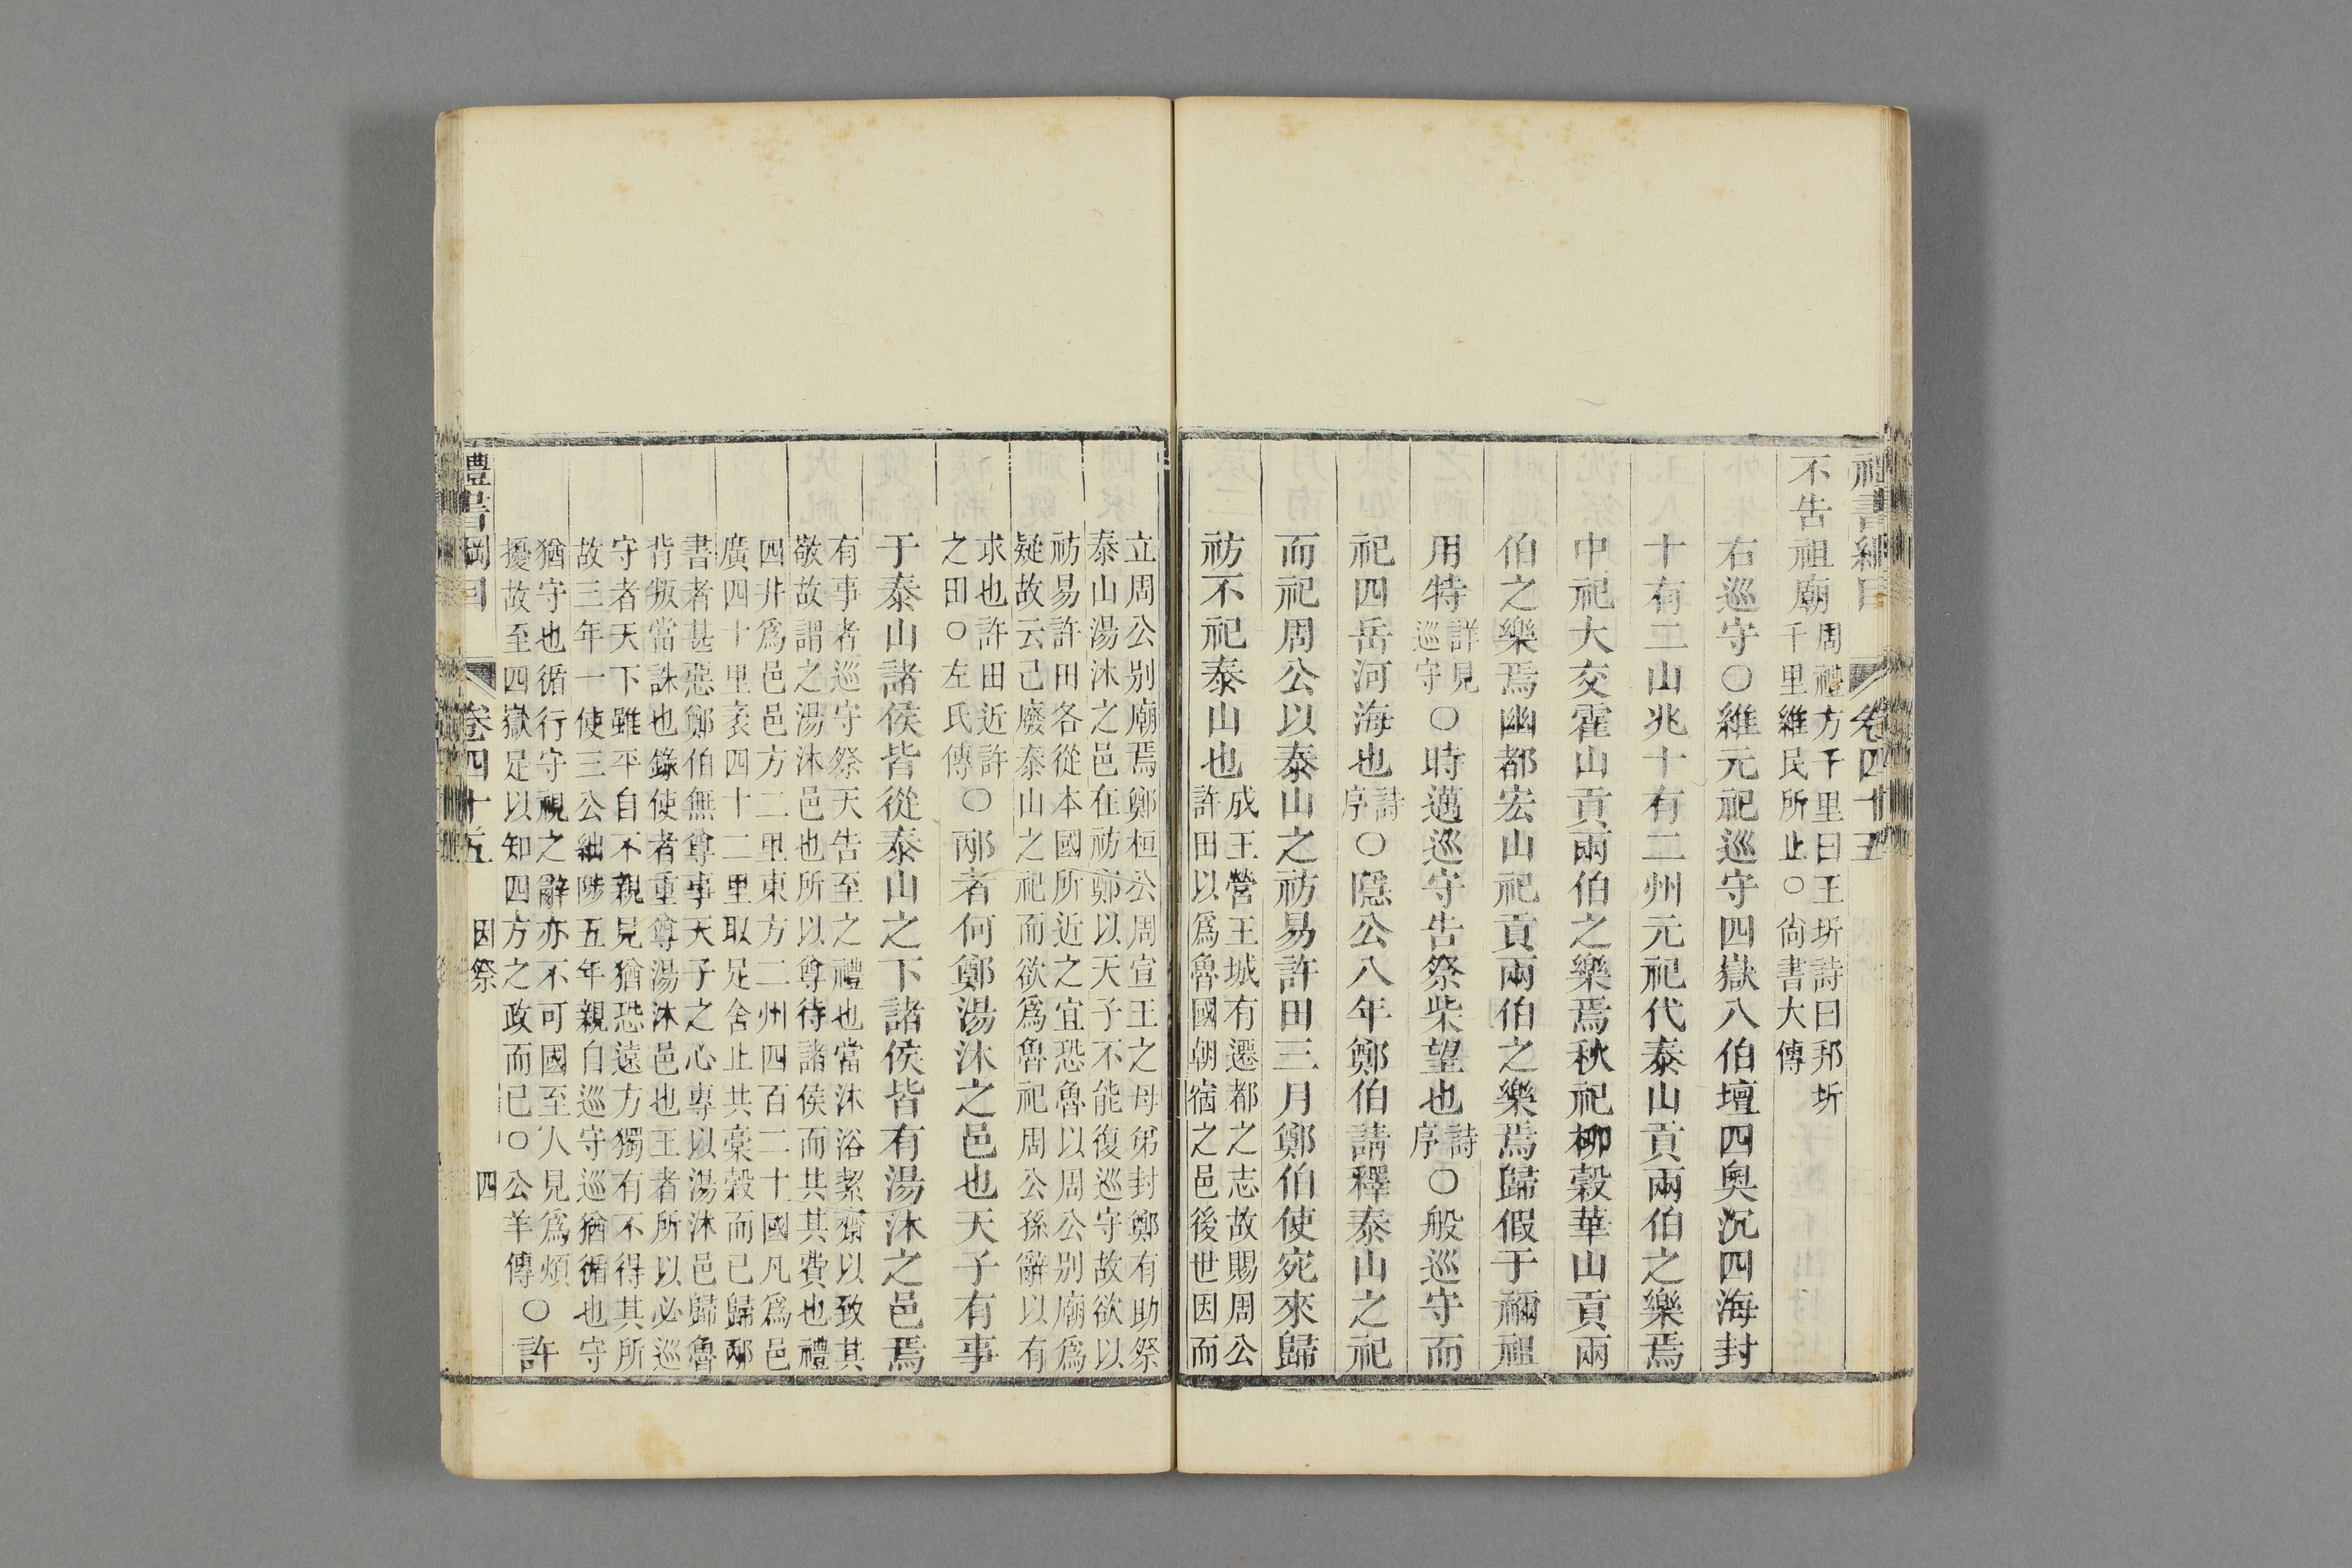 禮書綱目 卷四十五
不告祖廟周禮方千里曰王圻詩曰邦圻千里維民所止○尙書大傳
右巡守○維元祀巡守四嶽八伯壇四奧沉四海封
十有二山兆十有二州元祀代泰山貢兩伯之樂焉
中祀大交霍山貢兩伯之樂焉秋祀柳榖華山貢兩
伯之樂焉幽都宏山祀貢兩伯之樂焉歸假于禰祖
用特詳見巡守○時邁巡守告祭柴望也詩序○般巡守而
祀四岳河海也詩序○隱公八年鄭伯請釋泰山之祀
而祀周公以泰山之祊易許田三月鄭伯使宛來歸
祊不祀泰山也成王營王城有遷都之志故賜周公許田以爲魯國朝宿之邑後世因而
立周公別廟焉鄭桓公周宣王之母弟封鄭有助祭泰山湯沐之邑在祊鄭以天子不能復巡守故欲以
祊易許田各從本國所近之宜恐魯以周公別廟爲疑故云己廢泰山之祀而欲爲魯祀周公孫辭以有
求也許田近許之田○左氏傳○邴者何鄭湯沐之邑也天子有事
于泰山諸侯皆從泰山之下諸侯皆有湯沐之邑焉
有事者巡守祭天告至之禮也當沐浴絜齋以致其敬故謂之湯沐邑也所以尊待諸侯而共其費也禮
四井爲邑邑方二里東方二州四百二十國凡爲邑廣四十里袤四十二里取足舍止共槀穀而已歸邴
書者甚惡鄭伯無尊事天子之心專以湯沐邑歸魯背叛當誅也錄使者重尊湯沐邑也王者所以必巡
守者天下雖平自不親見猶恐遠方獨有不得其所故三年一使三公絀陟五年親自巡守巡猶循也守
猶守也循行守視之辭亦不可國至人見爲煩擾故至四嶽足以知四方之政而已○公羊傳○許
禮書綱目 卷四十五 因祭 四